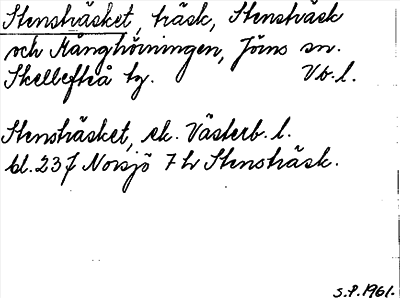 Stensträsket, träsk, Stensträsk
och Månghörningen, Jörns sn.
Skellefteå tg. Vb.l.
Stensträsket, ek. Västerb. l.
bl. 23 f Norsjö 7 hr Stensträsk.
S.P. 1961.